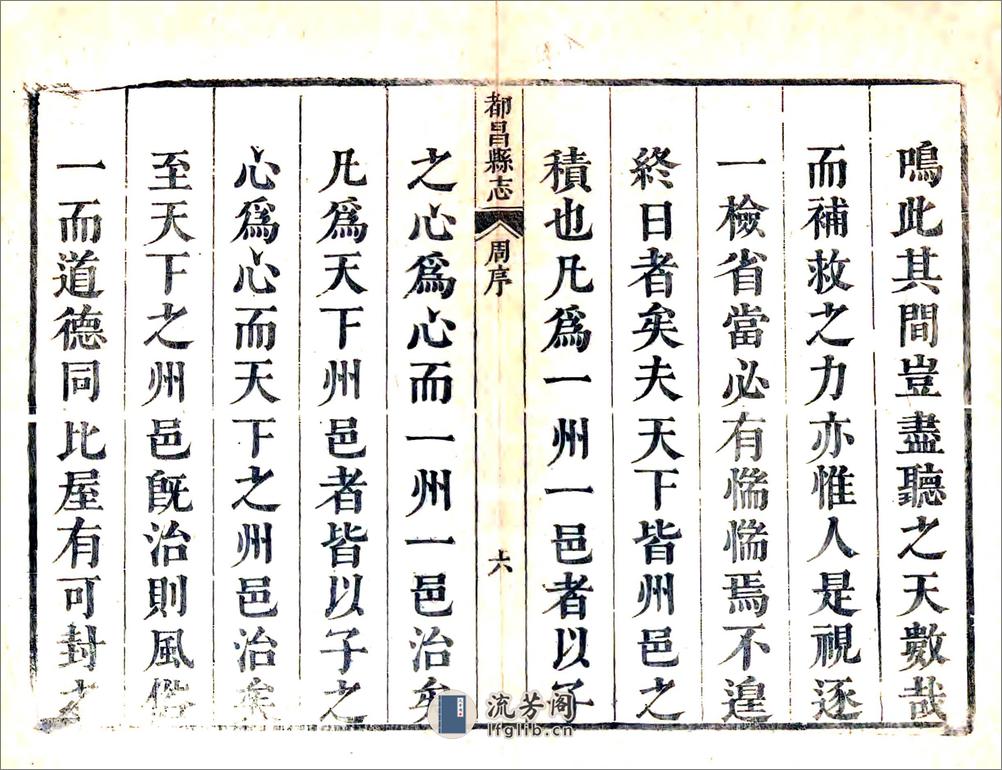 鳴此其間豈盡聽之天數哉
而補救之力亦惟人是視逐
一檢省當必有惴惴焉不遑
終日者矣夫天下皆州邑之
積也凡爲一州一邑者以子
都昌縣志 周序 六
之心爲心而一州一邑治矣
凡爲天下州邑者皆以子之
心爲心而天下之州邑治矣
至天下之州邑既治則風俗
一而道德同比屋有可封之
流芳阁
lfglib.cn